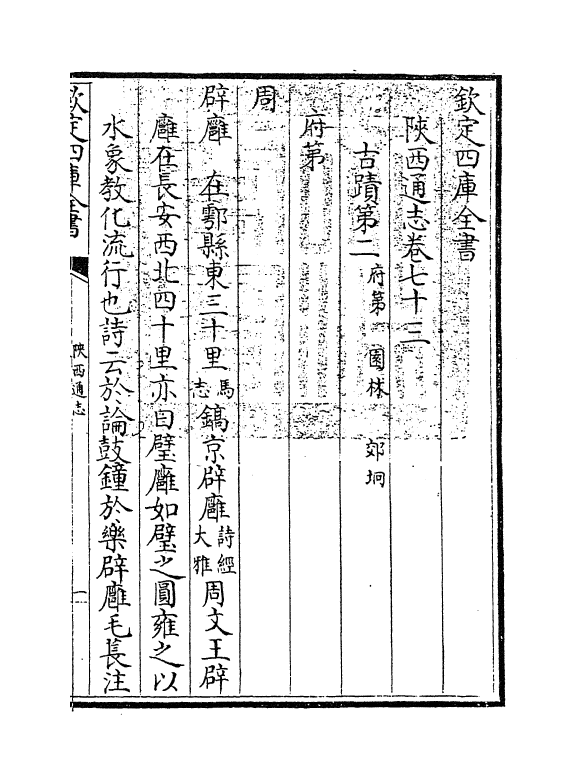 欽定四庫全書
陝西通志卷七十三
古蹟第二 府第 園林 郊坰
府第
周
辟廱 在鄠縣東三十里馬志鎬京辟廱詩經大雅周文王辟
廱在長安西北四十里亦曰璧廱如璧之圓雍之以
水象教化流行也詩云於論鼓鐘於樂辟廱毛萇注
欽定四庫全書
陝西通志
一